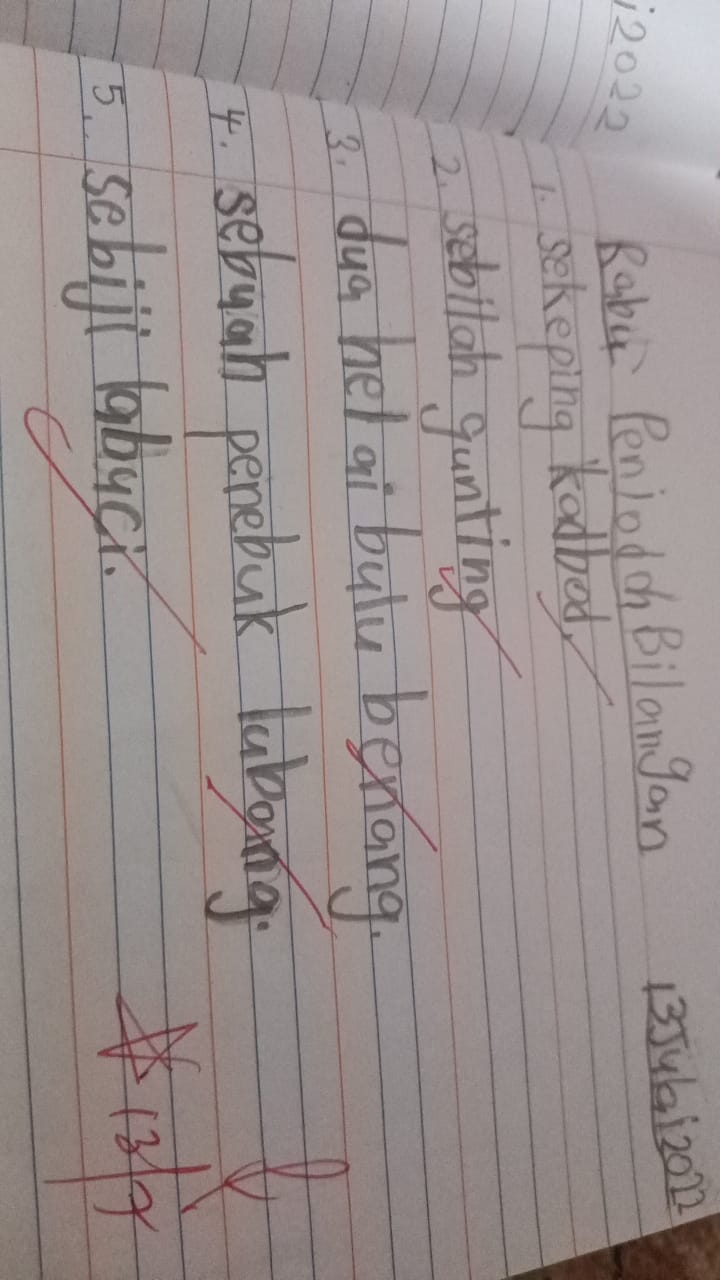 i 2022
Rabu Penjodoh Bilangan 13 Julai 2022
1. sekeping kadbod.
2. sebilah gunting
3. dua helai bulu benang.
4. sebuah penebuk lubang.
5. sebiji labuci.
13/7